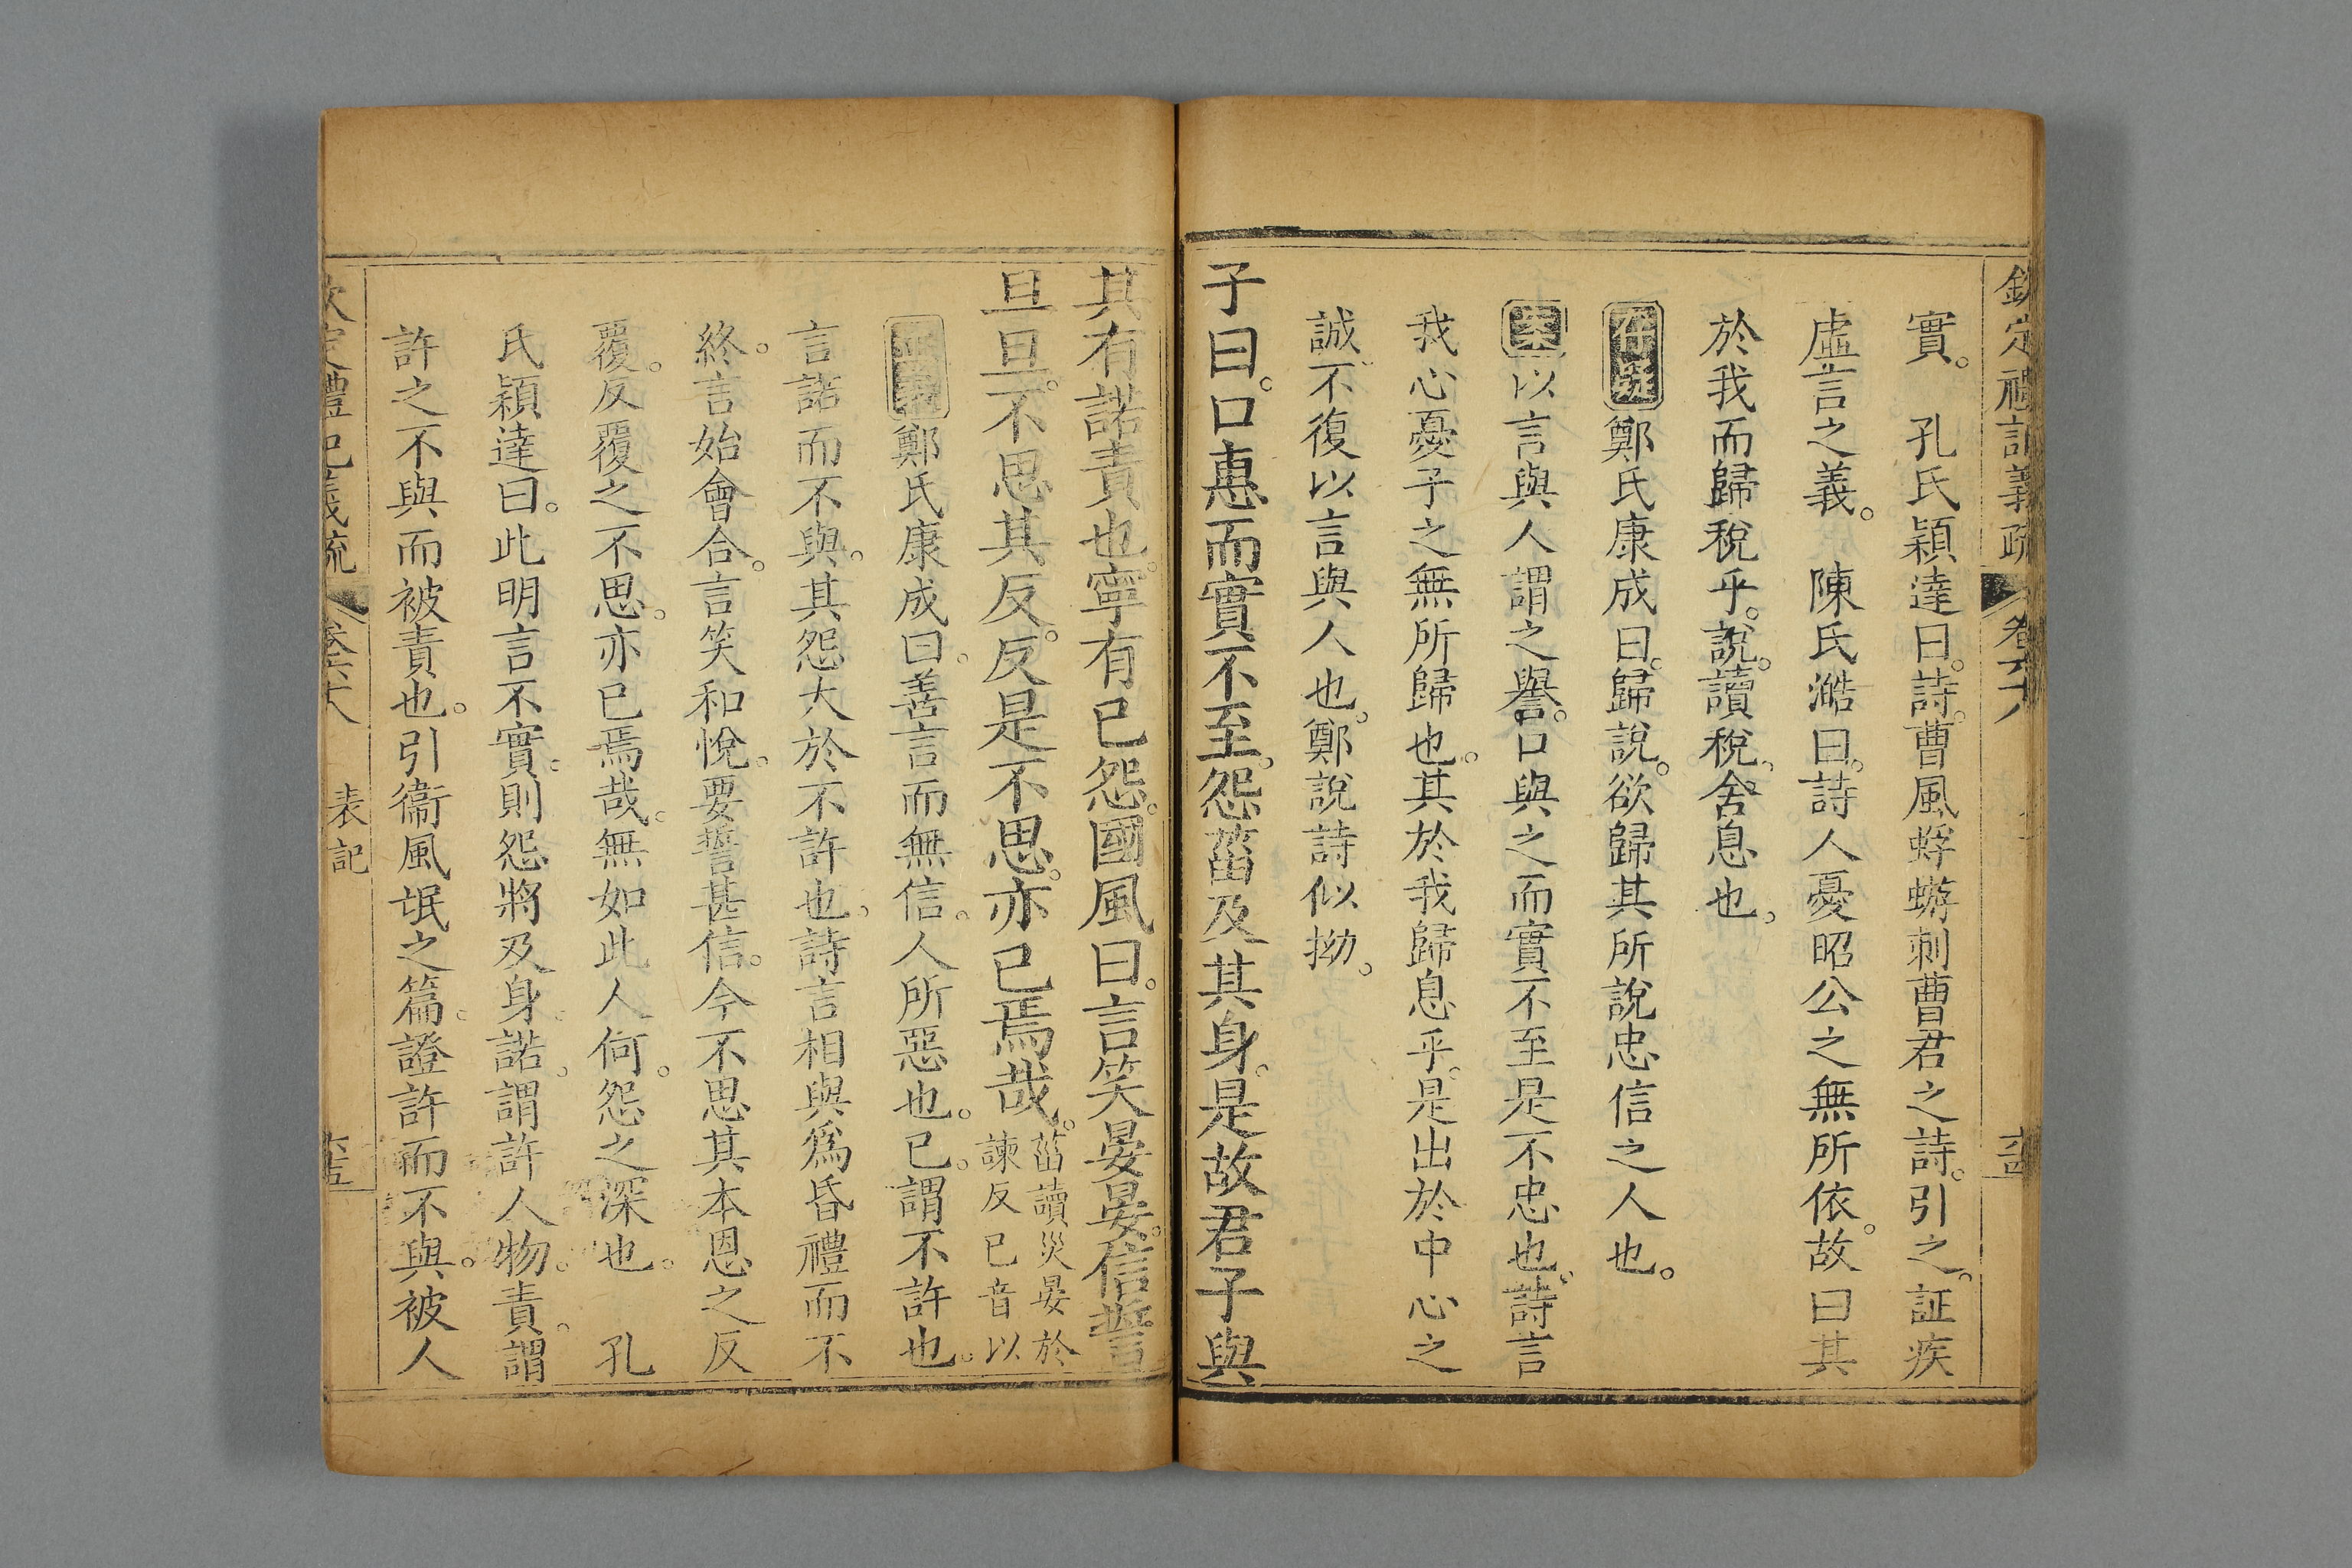 欽定禮記義疏 卷六十八
實。 孔氏穎達曰。詩。曹風蜉蝣刺曹君之詩。引之。証疾
虛言之義。 陳氏澔曰。詩人憂昭公之無所依。故曰其
於我而歸稅乎。說。讀稅。舍。息也。
存疑鄭氏康成曰。歸說。欲歸其所說忠信之人也。
案以言與人謂之譽。口與之而實不至是不忠也。詩言
我心憂子之無所歸也。其於我歸息乎。是出於中心之
誠。不復以言與人也。鄭說詩似拗。
子曰。口惠而實不至。怨菑及其身。是故君子與
其有諾責也。寧有已怨。國風曰。言笑晏晏。信誓
旦旦。不思其反。反是不思。亦已焉哉。菑讀災晏於
諫反已音以
正義鄭氏康成曰。善言而無信。人所惡也。已。謂不許也。
言諾而不與。其怨大於不許也。詩言相與為昏禮而不
終。言始會合。言笑和悅。要誓甚信。今不思其本恩之反
覆。反覆之不思。亦已焉哉。無如此人何。怨之深也。 孔
氏穎達曰。此明言不實。則怨將及身。諾。謂許人物。責。謂
許之不與而被責也。引衞風氓之篇。證許而不與。被人
欽定禮記義疏 卷六十八 表記